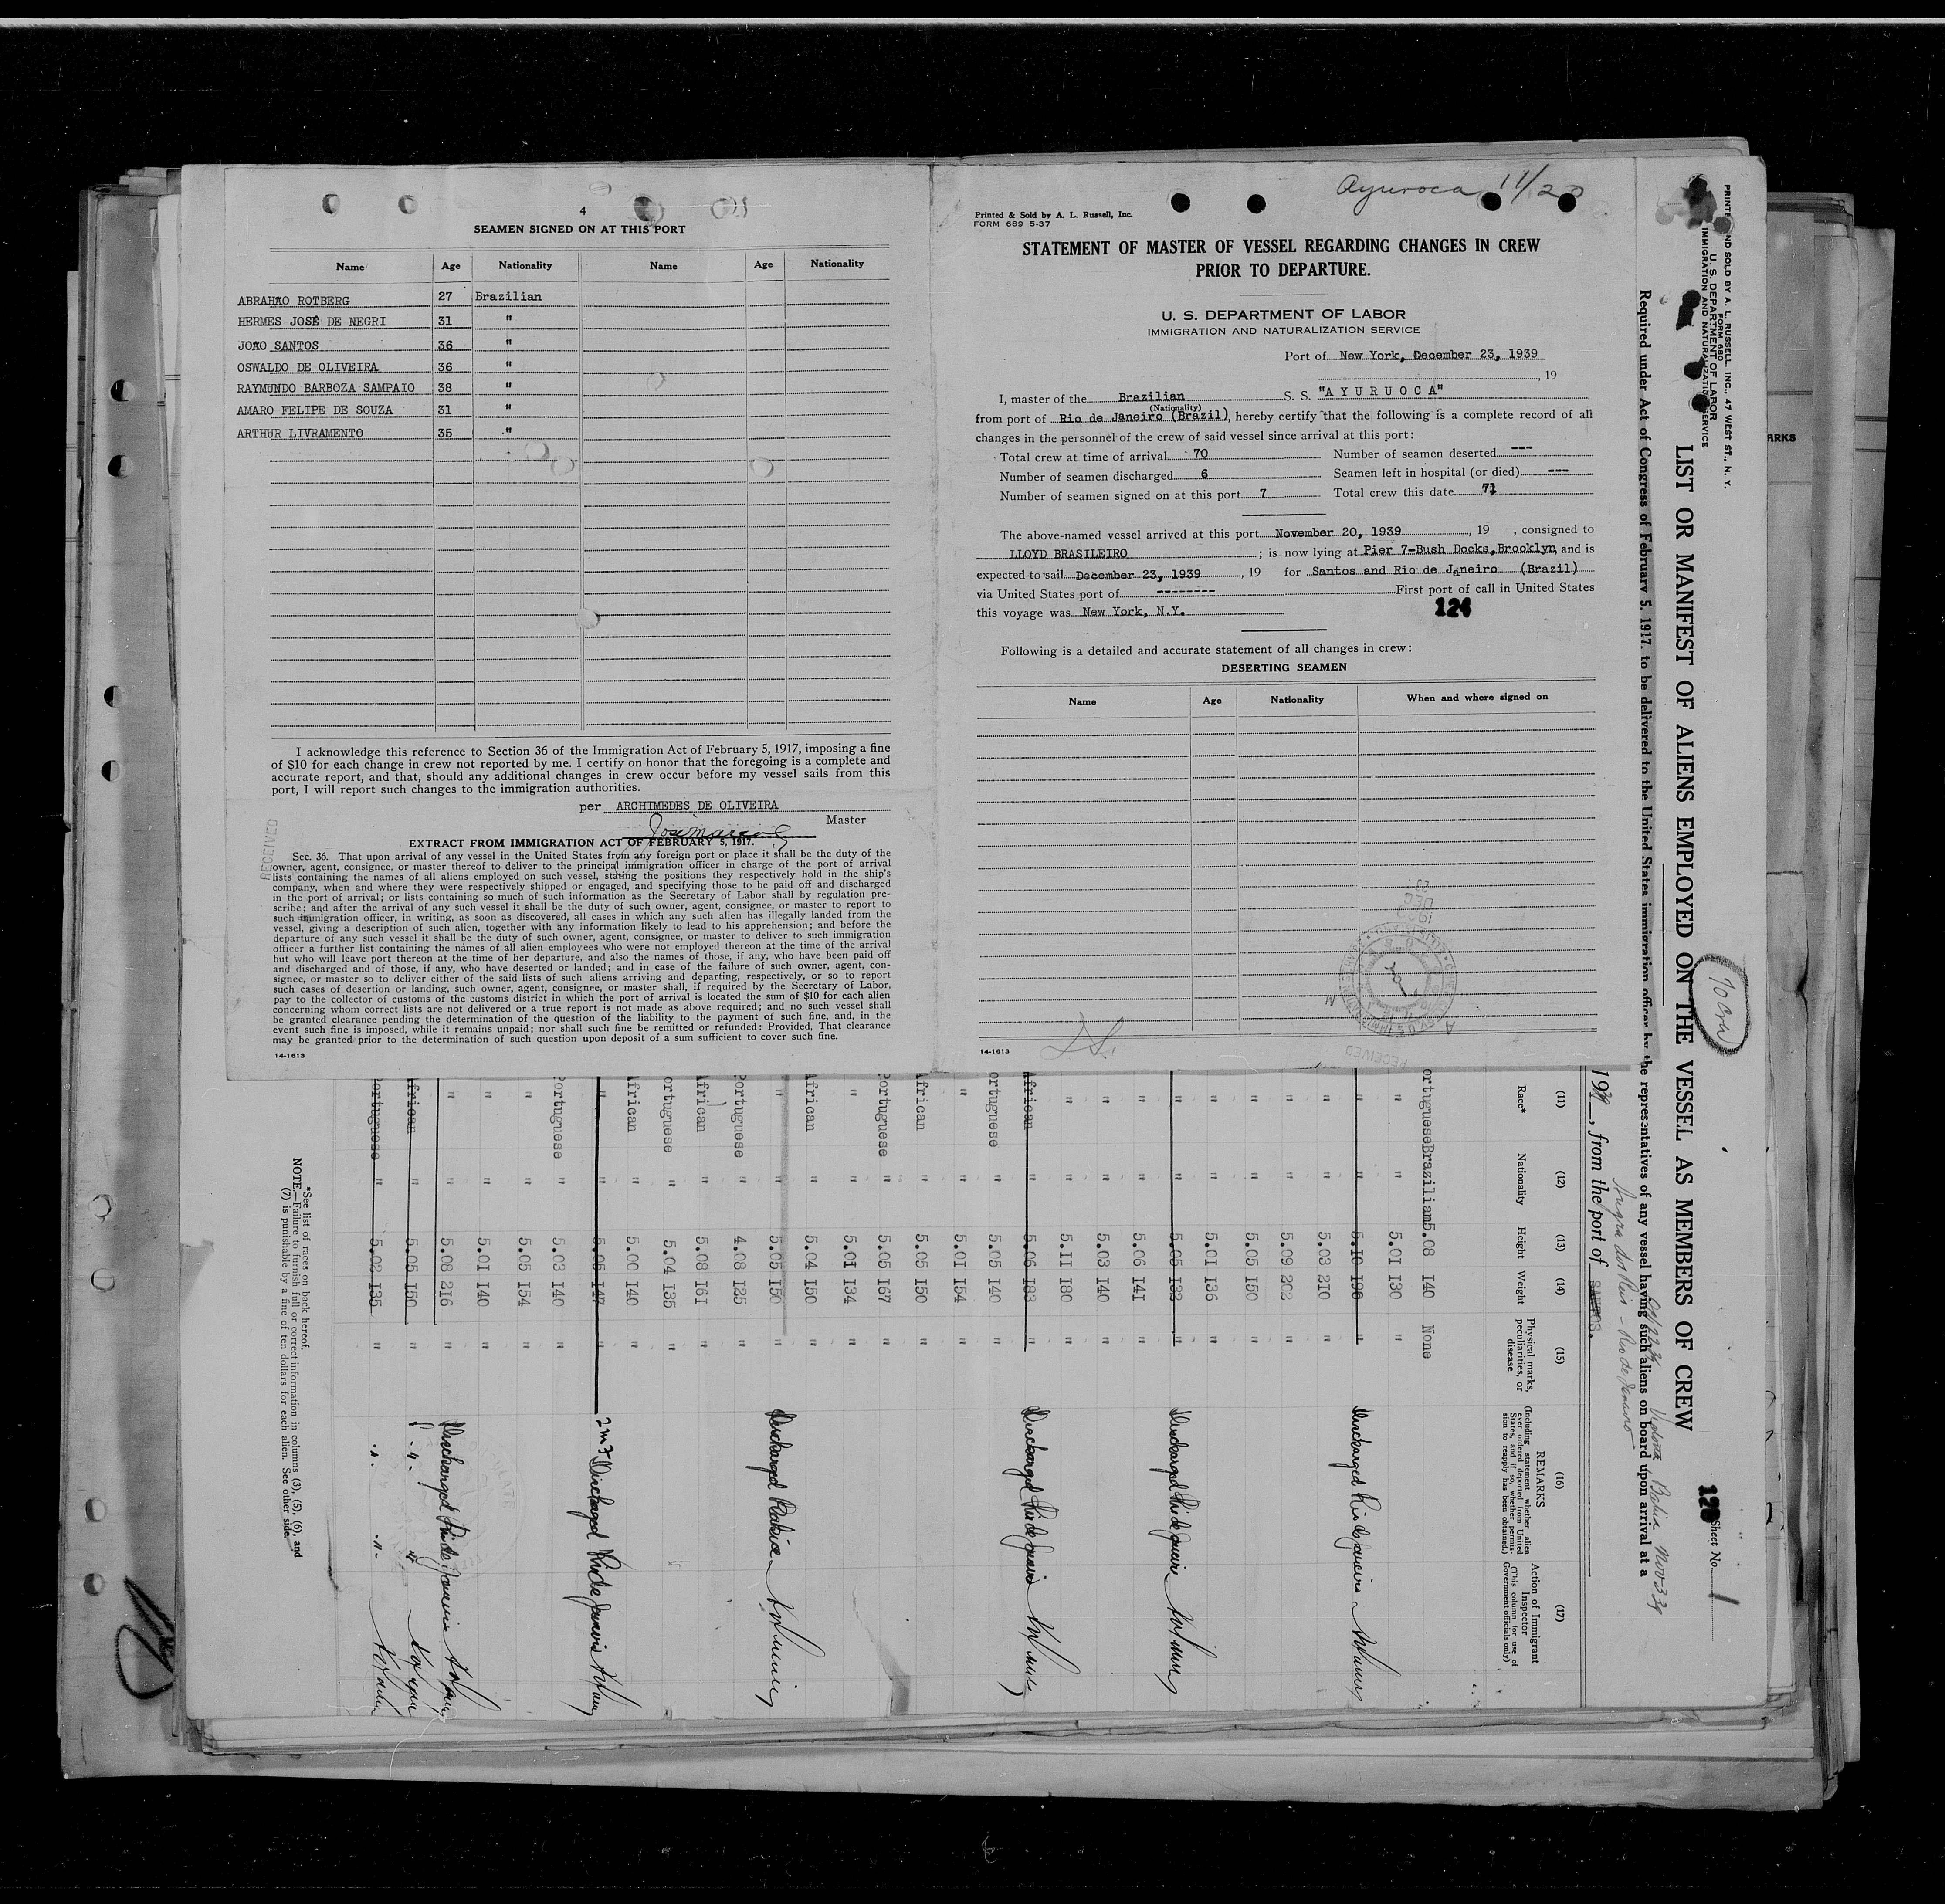 4
SEAMEN SIGNED ON AT THIS PORT
Name Age Nationality Name Age Nationality
ABRAHAO ROTBERG 27 Brazilian
HERMES JOSÉ DE NEGRI 31 "
JOAO SANTOS 36 "
OSWALDO DE OLIVEIRA 36 "
RAYMUNDO BARBOZA SAMPAIO 38 "
AMARO FELIPE DE SOUZA 31 "
ARTHUR LIVRAMENTO 35 "
I acknowledge this reference to Section 36 of the Immigration Act of February 5, 1917, imposing a fine
of $10 for each change in crew not reported by me. I certify on honor that the foregoing is a complete and
accurate report, and that, should any additional changes in crew occur before my vessel sails from this
port, I will report such changes to the immigration authorities.
per ARCHIMEDES DE OLIVEIRA
Master
RECEIVED
EXTRACT FROM IMMIGRATION ACT OF FEBRUARY 5, 1917.
Sec. 36. That upon arrival of any vessel in the United States from any foreign port or place it shall be the duty of the
owner, agent, consignee, or master thereof to deliver to the principal immigration officer in charge of the port of arrival
lists containing the names of all aliens employed on such vessel, stating the positions they respectively hold in the ship's
company, when and where they were respectively shipped or engaged, and specifying those to be paid off and discharged
in the port of arrival; or lists containing so much of such information as the Secretary of Labor shall by regulation pre-
scribe; and after the arrival of any such vessel it shall be the duty of such owner, agent, consignee, or master to report to
such immigration officer, in writing, as soon as discovered, all cases in which any such alien has illegally landed from the
vessel, giving a description of such alien, together with any information likely to lead to his apprehension; and before the
departure of any such vessel it shall be the duty of such owner, agent, consignee, or master to deliver to such immigration
officer a further list containing the names of all alien employees who were not employed thereon at the time of the arrival
but who will leave port thereon at the time of her departure, and also the names of those, if any, who have been paid off
and discharged and of those, if any, who have deserted or landed; and in case of the failure of such owner, agent, con-
signee, or master so to deliver either of the said lists of such aliens arriving and departing, respectively, or so to report
such cases of desertion or landing, such owner, agent, consignee, or master shall, if required by the Secretary of Labor,
pay to the collector of customs of the customs district in which the port of arrival is located the sum of $10 for each alien
concerning whom correct lists are not delivered or a true report is not made as above required; and no such vessel shall
be granted clearance pending the determination of the question of the liability to the payment of such fine, and, in the
event such fine is imposed, while it remains unpaid; nor shall such fine be remitted or refunded: Provided, That clearance
may be granted prior to the determination of such question upon deposit of a sum sufficient to cover such fine.
14-1613
Ayuroca 11/20
Printed & Sold by A. L. Russell, Inc.
FORM 689 5-37
STATEMENT OF MASTER OF VESSEL REGARDING CHANGES IN CREW
PRIOR TO DEPARTURE.
U. S. DEPARTMENT OF LABOR
IMMIGRATION AND NATURALIZATION SERVICE
Port of New York, December 23, 1939
, 19
I, master of the Brazilian S. S. "AYURUOCA"
(Nationality)
from port of Rio de Janeiro (Brazil), hereby certify that the following is a complete record of all
changes in the personnel of the crew of said vessel since arrival at this port:
Total crew at time of arrival 70 Number of seamen deserted ---
Number of seamen discharged 6 Seamen left in hospital (or died) ---
Number of seamen signed on at this port 7 Total crew this date 71
The above-named vessel arrived at this port November 20, 1939, 19 , consigned to
LLOYD BRASILEIRO ; is now lying at Pier 7-Bush Docks, Brooklyn, and is
expected to sail December 23, 1939, 19 for Santos and Rio de Janeiro (Brazil)
via United States port of -------- First port of call in United States
this voyage was New York, N.Y.
124
Following is a detailed and accurate statement of all changes in crew:
DESERTING SEAMEN
Name Age Nationality When and where signed on
14-1613
RECEIVED
PRINTED AND SOLD BY A. L. RUSSELL, INC., 47 WEST ST., N. Y.
FORM 680
U. S. DEPARTMENT OF LABOR
IMMIGRATION AND NATURALIZATION SERVICE
Sheet No. 1
LIST OR MANIFEST OF ALIENS EMPLOYED ON THE VESSEL AS MEMBERS OF CREW
70 Crew
Required under Act of Congress of February 5, 1917, to be delivered to the United States immigration officer by the representatives of any vessel having such aliens on board upon arrival at a
Victoria Bahia Nov-3-39
Angra dos Reis - Rio de Janeiro
, from the port of SANTOS.
(11) (12) (13) (14) (15) (16) (17)
Race* Nationality Height Weight Physical marks, peculiarities, or disease
REMARKS
(Including statement whether alien ever ordered deported from United States, and if so, whether permission to reapply has been obtained.)
Action of Immigrant Inspector
(This column for use of Government officials only)
ortuguese Brazilian 5.08 140 None
" " 5.01 130 "
" " 5.10 190 " Discharged Rio de Janeiro
" " 5.03 210 "
" " 5.09 202 "
" " 5.05 150 "
" " 5.01 136 "
" " 5.05 132 " Discharged Rio de Janeiro
" " 5.06 141 "
" " 5.03 140 "
" " 5.11 180 "
African " 5.06 183 " Discharged Rio de Janeiro
ortuguese " 5.05 140 "
" " 5.01 154 "
African " 5.05 150 "
Portuguese " 5.05 167 "
" " 5.01 134 "
African " 5.04 150 "
" " 5.05 150 " Discharged Bahia
Portuguese " 4.08 125 "
African " 5.08 161 "
ortuguese " 5.04 135 "
African " 5.00 140 "
" " 5.05 147 " Discharged Rio de Janeiro
Portuguese " 5.03 140 "
" " 5.05 154 "
" " 5.01 140 "
" " 5.08 216 " Discharged Rio de Janeiro
African " 5.05 150 " " "
ortuguese " 5.02 135 " " "
*See list of races on back hereof.
NOTE.—Failure to furnish full or correct information in columns (3), (5), (6), and
(7) is punishable by a fine of ten dollars for each alien. See other side.
ARKS